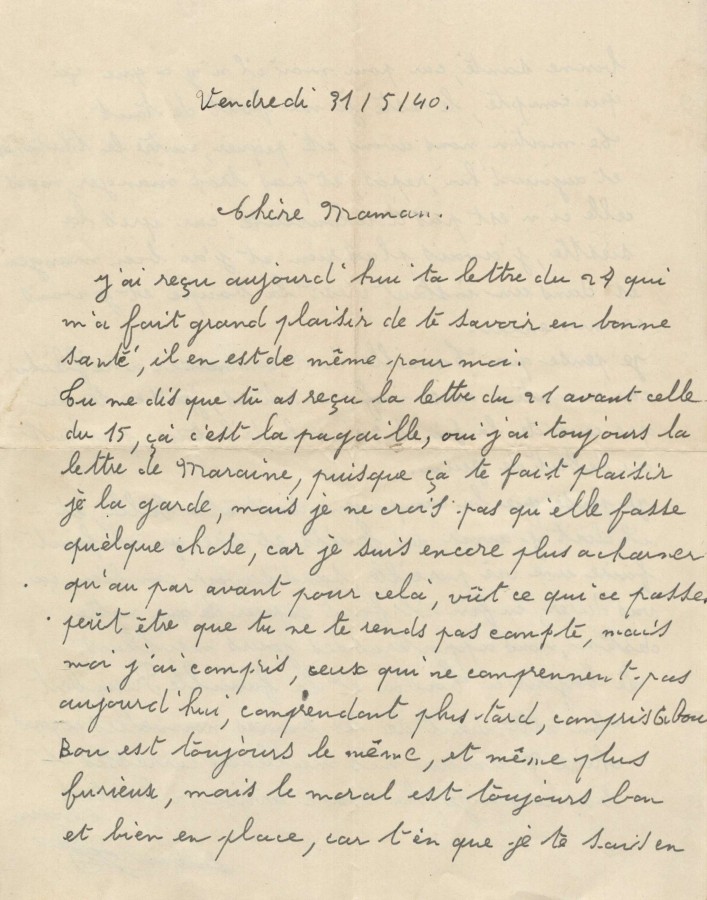 Vendredi 31/5/40.
Chère Maman.
j'ai reçu aujourd'hui ta lettre du 24 qui
m'a fait grand plaisir de te savoir en bonne
santé, il en est de même pour moi.
Tu me dis que tu as reçu la lettre du 21 avant celle
du 15, çà c'est la pagaille, oui j'ai toujours la
lettre de Maraine, puisque çà te fait plaisir
je la garde, mais je ne crois pas qu'elle fasse
quelque chose, car je suis encore plus acharner
qu'au par avant pour celà, vût ce qui ce passe,
peût être que tu ne te rends pas compte, mais
moi j'ai compris, ceux qui ne comprennent pas
aujourd'hui, comprendont plus tard, compris
Bou est toujours le même, et même plus
furieux, mais le moral est toujours bon
et bien en place, car t'en que je te sais en